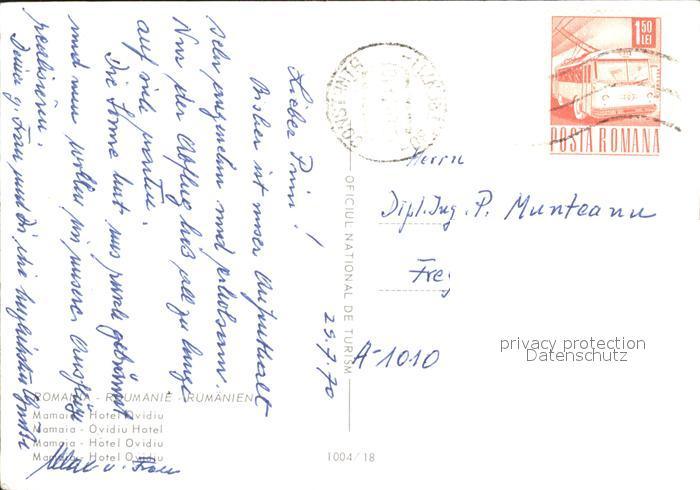 Lieber Prin!
Bisher ist unser Aufenthalt
sehr angenehm und erholsam.
Nur der Abflug ließ allzu lange
auf sich warten.
Die Sonne hat uns
und nun wollen wir unsere Ausflüge
realisieren.
Deine Frau und Dir die herzlichsten Grüße
Max u. Frau
29.7.70
ROMANIA - ROUMANIE - RUMÄNIEN
Mamaia - Hotel Ovidiu
Mamaia - Ovidiu Hotel
Mamaia - Hôtel Ovidiu
Mamaia - Hotel Ovidiu
OFICIUL NATIONAL DE TURISM
1004/18
1,50
LEI
POSTA ROMANA
CONSTANTA
Herrn
Dipl. Ing. P. Munteanu
A-1010
privacy protection
Datenschutz